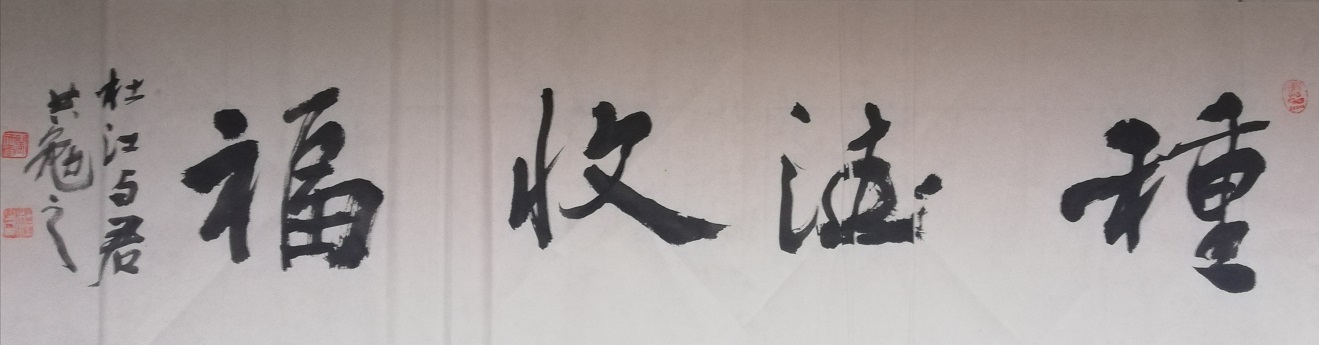 種德收福
杜江与君
共勉之